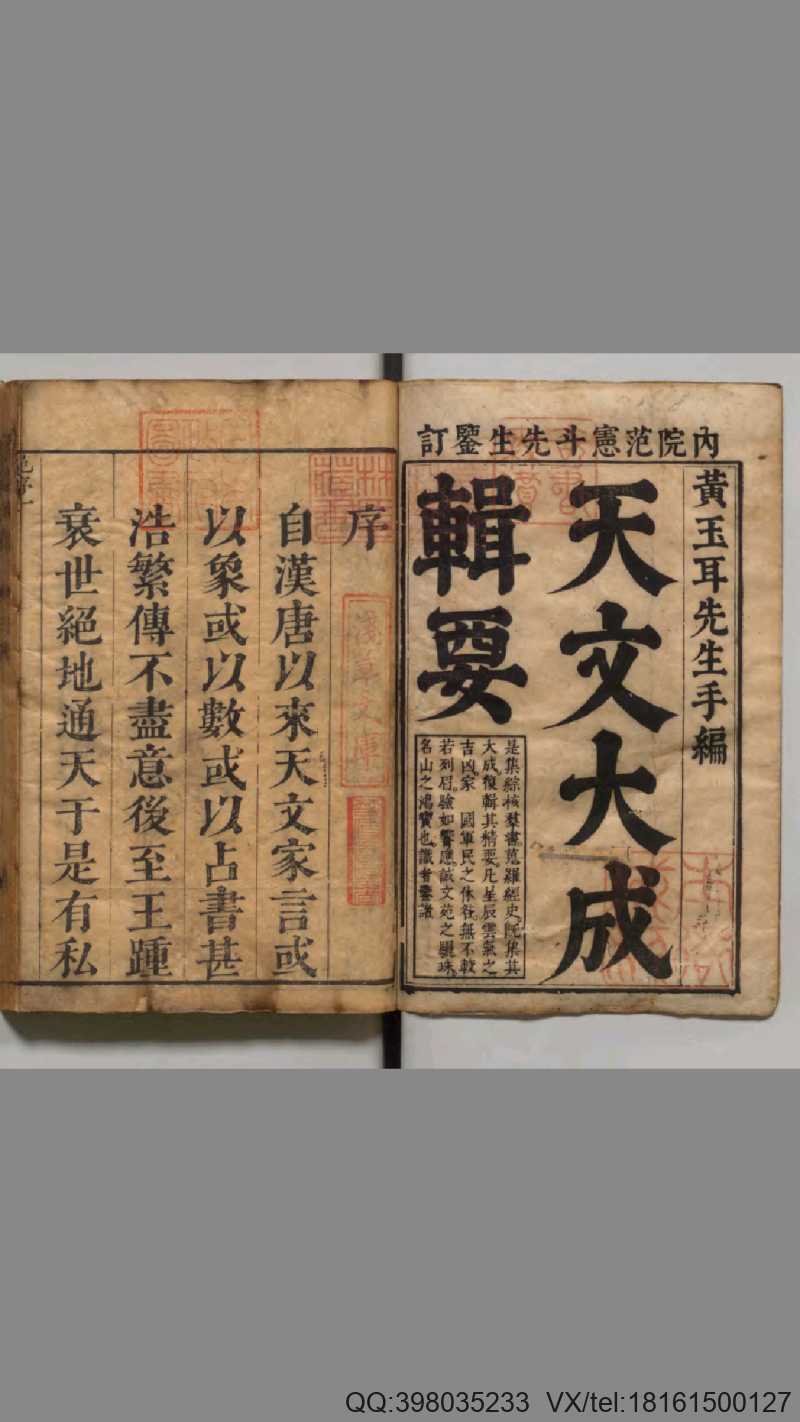 內院范憲斗先生鑒訂
黃玉耳先生手編
天文大成
輯要
是集綜核羣書蒐羅經史既集其
大成復輯其精要凡星辰雲氣之
吉凶家國軍民之休咎無不較
若列眉驗如響應誠文苑之驪珠
名山之鴻寶也識者鑒諸
序
淺草文庫
自漢唐以來天文家言或
以象或以數或以占書甚
浩繁傳不盡意後至王踵
衰世絕地通天于是有私
QQ:398035233 VX/tel:18161500127